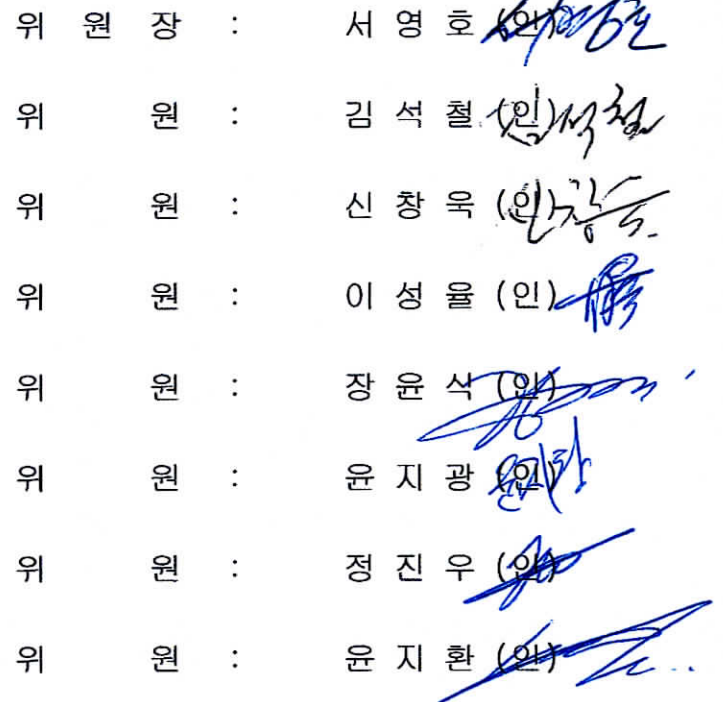 위 원 장 : 서 영 호 (인)
위 원 : 김 석 철 (인)
위 원 : 신 창 욱 (인)
위 원 : 이 성 율 (인)
위 원 : 장 윤 석 (인)
위 원 : 윤 지 광 (인)
위 원 : 정 진 우 (인)
위 원 : 윤 지 환 (인)